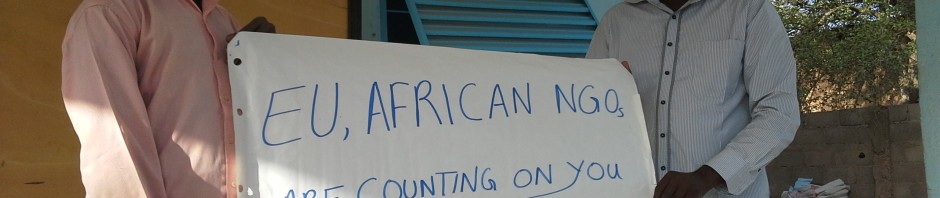 EU, AFRICAN NGOs
ARE COUNTING ON YOU